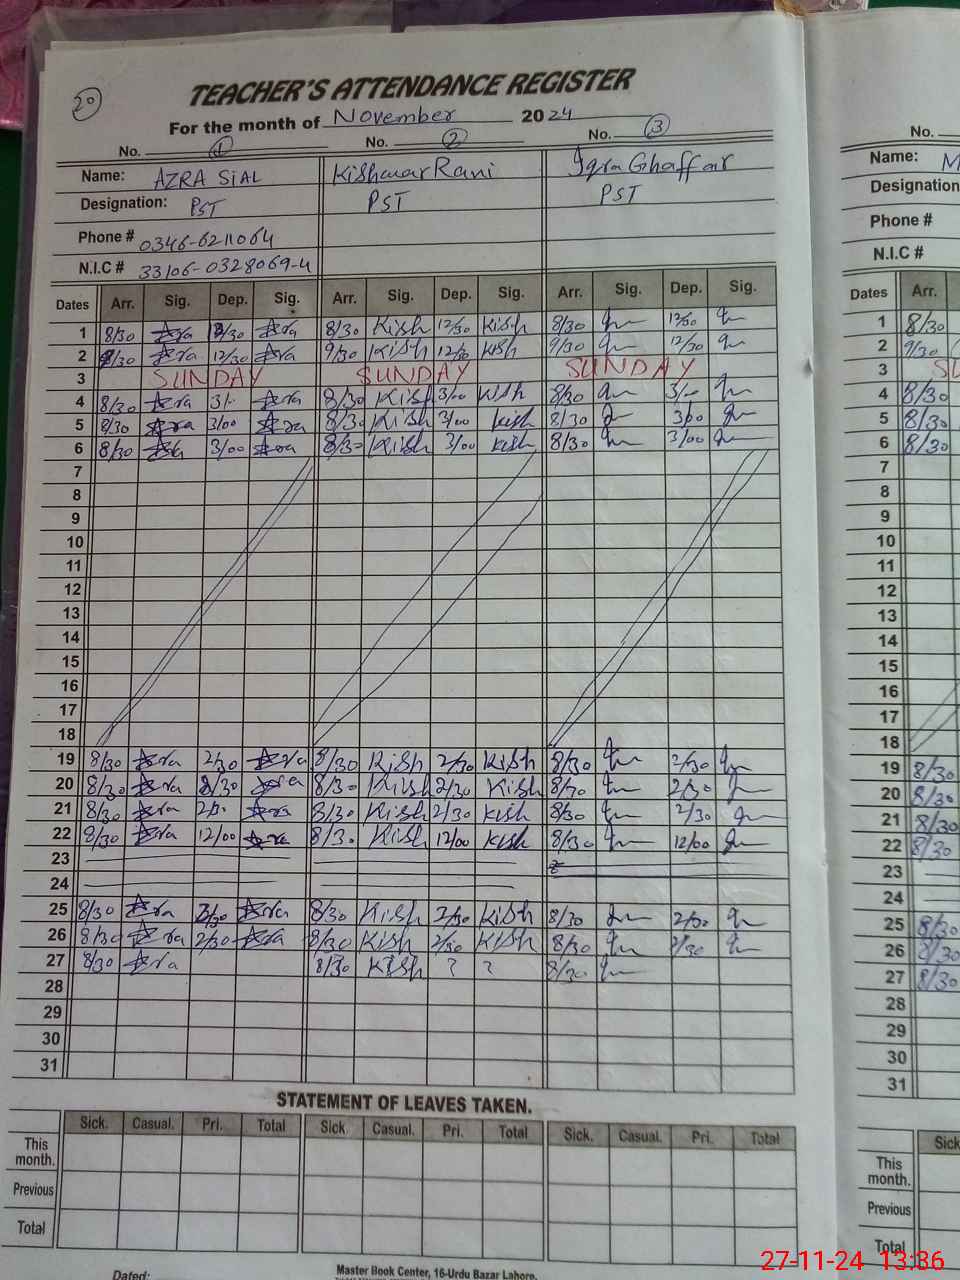 20
TEACHER'S ATTENDANCE REGISTER
For the month of November 2024
No. 1 No. 2 No. 3 No.
Name: AZRA SIAL Kishwar Rani Iqra Ghaffar Name: M
Designation: PST PST PST Designation
Phone # 0346-6211064 Phone #
N.I.C # 33106-0328069-4 N.I.C #
Dates Arr. Sig. Dep. Sig. Arr. Sig. Dep. Sig. Arr. Sig. Dep. Sig. Dates Arr.
1 8/30 12/30 8/30 Kish 12/30 Kish 8/30 12/30 1 8/30
2 8/30 12/30 9/30 Kish 12/30 Kish 9/30 12/30 2 9/30
3 SUNDAY SUNDAY SUNDAY 3 SU
4 8/30 3/- 8/30 Kish 3/00 Kish 8/30 3/- 4 8/30
5 8/30 3/00 8/30 Kish 3/00 Kish 8/30 3/00 5 8/30
6 8/30 3/00 8/30 Kish 3/00 Kish 8/30 3/00 6 8/30
7 7
8 8
9 9
10 10
11 11
12 12
13 13
14 14
15 15
16 16
17 17
18 18
19 8/30 2/30 8/30 Kish 2/30 Kish 8/30 2/30 19 8/30
20 8/30 2/30 8/30 Kish 2/30 Kish 8/30 2/30 20 8/30
21 8/30 2/30 8/30 Kish 2/30 Kish 8/30 2/30 21 8/30
22 8/30 12/00 8/30 Kish 12/00 Kish 8/30 12/00 22 8/30
23 23
24 24
25 8/30 2/30 8/30 Kish 2/30 Kish 8/30 2/30 25 8/30
26 8/30 2/30 8/30 Kish 2/30 Kish 8/30 2/30 26 8/30
27 8/30 8/30 Kish ? ? 8/30 27 8/30
28 28
29 29
30 30
31 31
STATEMENT OF LEAVES TAKEN.
Sick. Casual. Pri. Total Sick Casual. Pri. Total Sick. Casual. Pri. Total Sick
This month. This month.
Previous Previous
Total Total
Dated: Master Book Center, 16-Urdu Bazar Lahore.
27-11-24 13:36